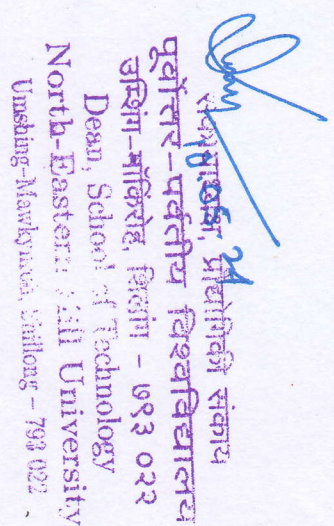 18.05.21
संकायाध्यक्ष, प्रौद्योगिकी संकाय
पूर्वोत्तर-पर्वतीय विश्वविद्यालय
उम्शिंग-मॉकिरोह, शिलांग - ७९३ ०२२
Dean, School of Technology
North-Eastern Hill University
Umshing-Mawkynroh, Shillong - 793 022